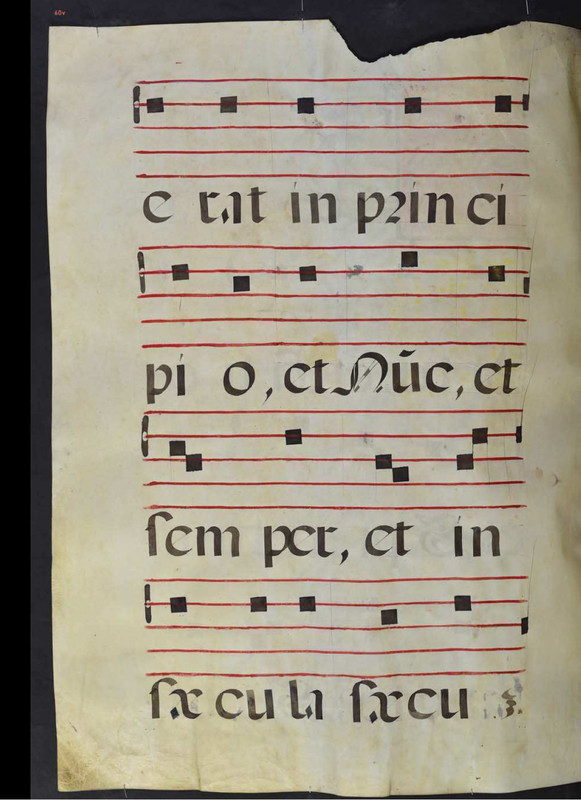 60v
e rat in princi
pi o, et Nūc, et
ſem per, et in
ſæ cu la ſæcu